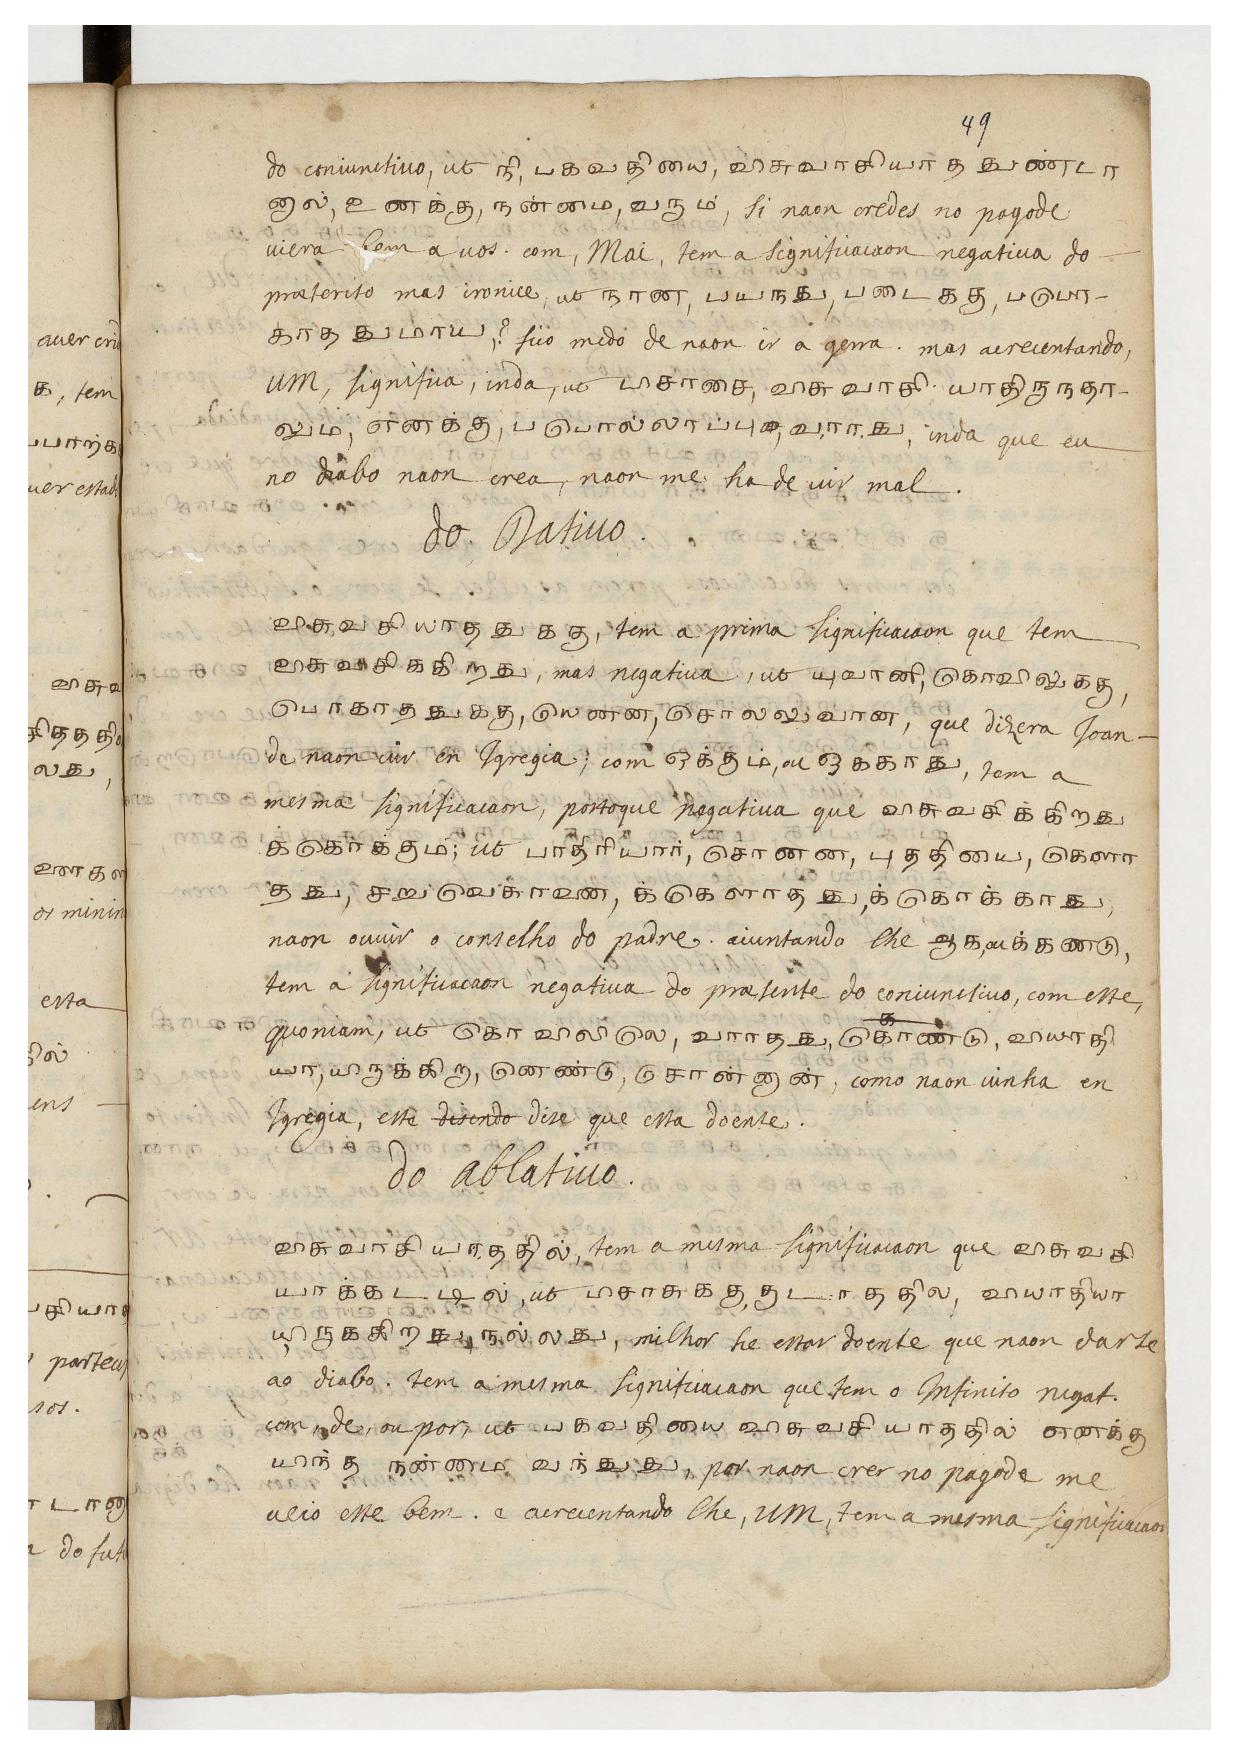 49
do coniunctiuo, ut நி, பகவதியை, விசுவாசியாத துண்டா
னால், உணக்கு, நன்மை, வரும், si naon credes no pagode
viera bem a vos. com, Mai, tem a significacaon negatiua do
præterito mas ironice, ut நான, பயநது, படைககு, படுபொ-
காத துமாய,? fiio medo de naon ir a gerra. mas acrecentando,
UM, significa, inda, ut பசாசை, விசுவாசி யாதிருநதா-
லும், எனக்கு, பபொல்லாப்பு, வாராது, inda que eu
no diabo naon crea, naon me ha de vir mal.
do Datiuo.
விசுவசியாத து ககு, tem a prima significacaon que tem
விசுவசிககிறது, mas negatiua, ut யுவானி, கொவிலுககு,
பொகாத துககு, யெணன, சொலலுவான, que dizera Joan
de naon uir en Igregia; com ஒக்கும், ut ஒககாது, tem a
mesma significacaon, portoque negatiua que விசுவசிக்கிறது
க்கொக்கும்; ut பாதிரியார், சொணன, புததியை, கெளா
தது, சறுவெகாவண, க்கெளாதது, க்கொக்காது,
naon ouuir o conselho do padre. aiuntando lhe ஆக, ut க்கண்டு,
tem a significacaon negatiua do præsente do coniunctiuo, com este,
quoniam, ut கொவிலிலெ, வாராதது, கொண்டு, வியாதி
யா, யிருக்கிறெ, னெண்டு, சொன்னான், como naon uinha en
Igregia, este disendo dise que esta doente.
do Ablatiuo.
விசுவாசியாததில், tem a mesma significacaon que விசுவசி
யாக்கடடில், ut பசாசுககுகுடாததில, வியாதியா
யிருககிறது, நல்லது, milhor he estar doente que naon darse
ao diabo. tem a mesma significacaon que tem o Infinito negat.
com, de, ou por, ut பகவதியை விசுவசியாததில் எனக்கு
யிந்த நண்மை வந்தது, por naon crer no pagode me
ueio este bem. e acrecentando lhe, UM, tem a mesma significacaon